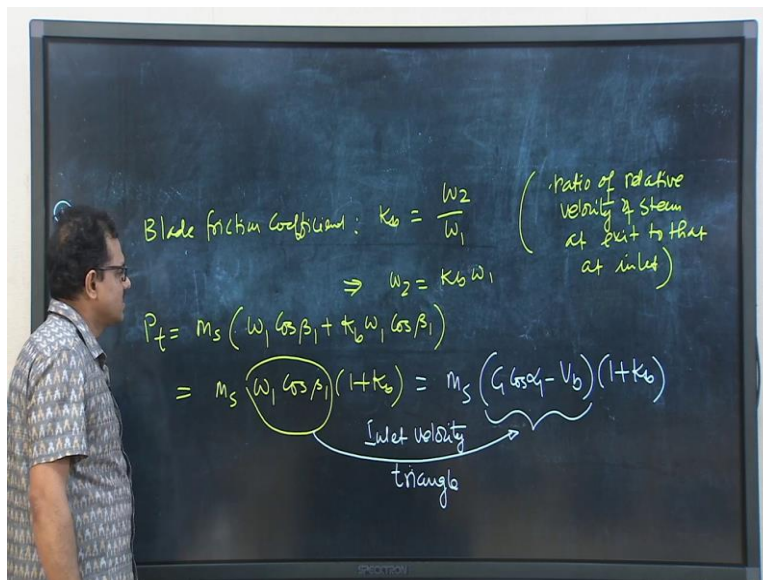 Blade friction Coefficient : K_b = W_2 / W_1 ( ratio of relative
velocity of steam
at exit to that
at inlet )
⇒ ω_2 = K_b ω_1
P_t = m_s ( ω_1 Cos β_1 + K_b ω_1 Cos β_1 )
= m_s ω_1 Cos β_1 (1+K_b) = m_s (C_1 Cos α_1 - V_b) (1+K_b)
Inlet velocity
triangle
SPECTRON